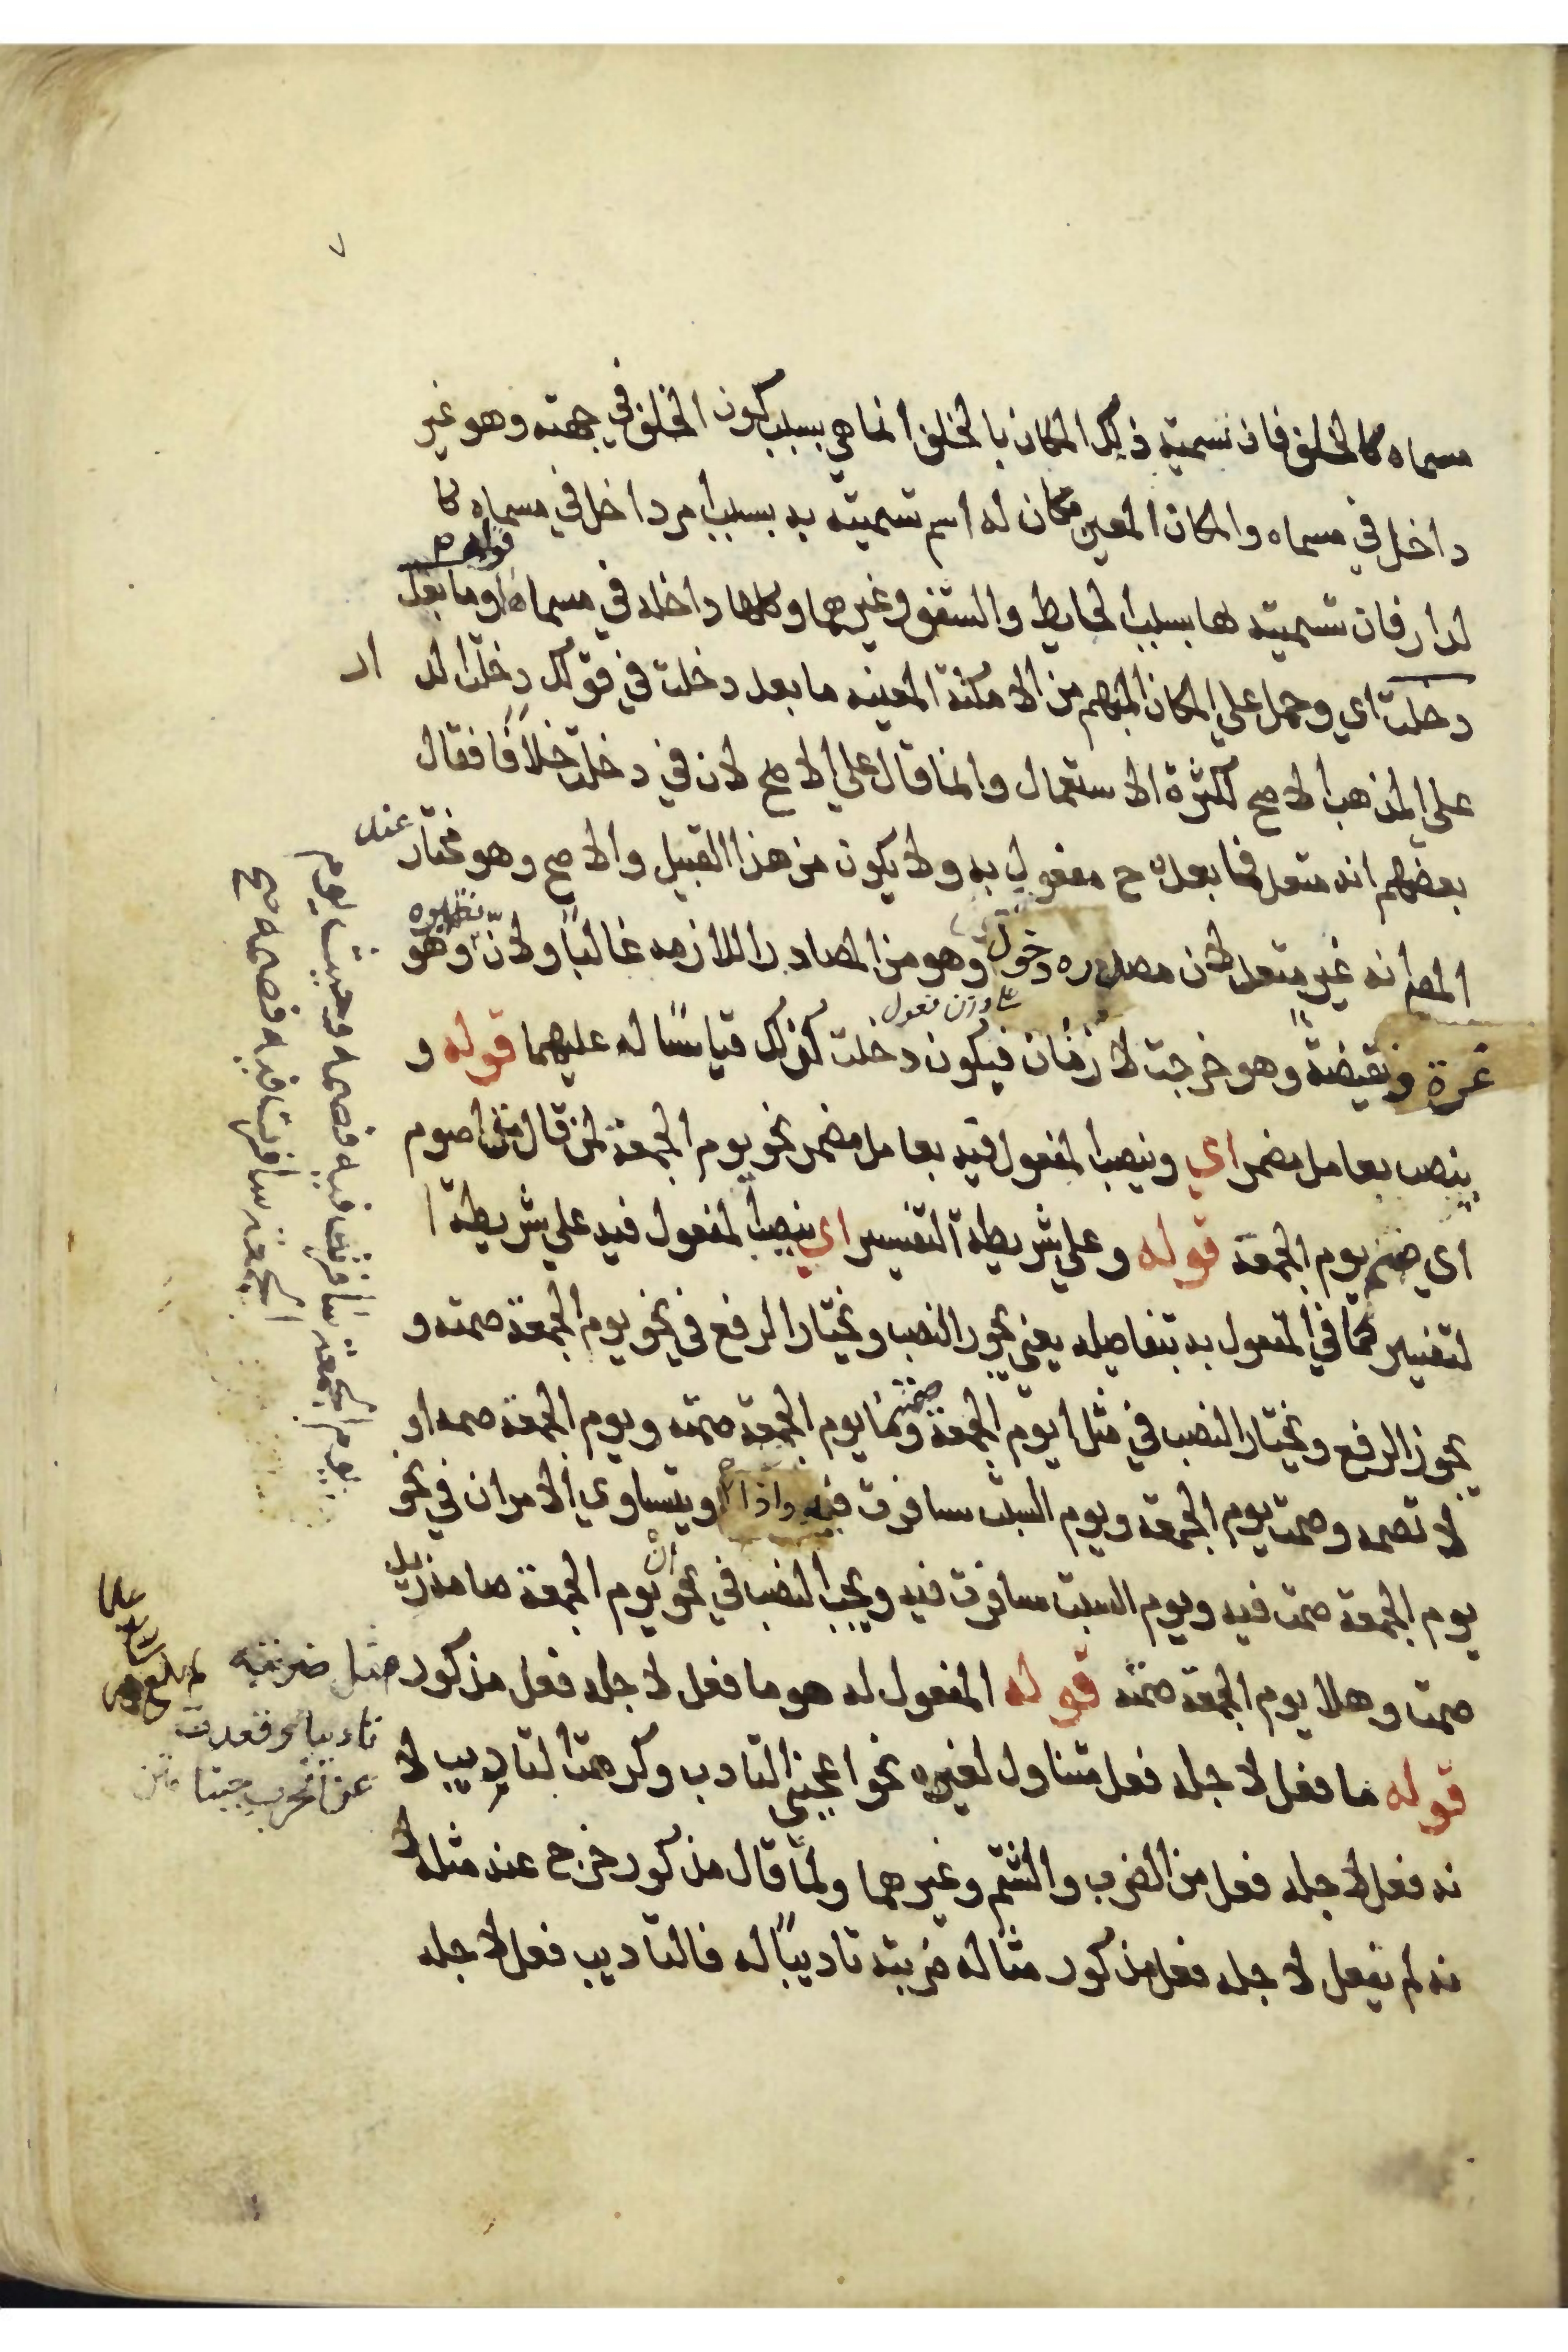 ٧
مسماه كالخلف فان تسميته ذلك المكان بالخلف انما هي بسبب كون الخلف في جهته وهو غير
داخل في مسماه والمكان المعين مكان له اسم تسميته به بسبب امر داخل في مسماه كا
لدار فان تسميته لها بسبب الحايط والسقف وغيرهما وكلها داخله في مسماه قوله وما بعد
دخلت اي وحمل على المكان المبهم من الامكنة المعينه ما بعد دخلت في قولك دخلت الد ار
على المذهب الاصح لكثرة الاستعمال وانما قال على الاصح لان في دخلت خلافا فقال
بعضهم انه متعد فما بعده ح مفعول به ولا يكون من هذا القبيل والاصح وهو مختار عند
المص انه غير متعد لان مصدره دخول وهو من المصادر اللازمه غالبًا ولانّ نظيره وهو
على وزن فعول
غرة ونقيضة وهو خرجت لازمان فيكون دخلت كذلك قياسًا له عليهما قوله و
ينصب بعامل مضمر اي وينصب المفعول فيه بعامل مضمر نحو يوم الجمعة لمن قال متى اصوم
اي صم يوم الجمعة قوله وعلى شريطة التفسير اي ينصب المفعول فيه على شريطة ا
لتفسير كما في المفعول به بتفاصيله يعني يجوز النصب ويختار الرفع في نحو يوم الجمعة صمته و
يجوز الرفع ويختار النصب في مثل ايوم الجمعة صمته وما يوم الجمعة صمته ويوم الجمعة صمه او
لا تصمه وصمت يوم الجمعة ويوم السبت سافرت فيه واذا ويتساوي الامران في نحو
يوم الجمعة صمت فيه ويوم السبت سافرت فيه ويجب النصب في نحو ان يوم الجمعة صامه زيد
صمت وهلا يوم الجمعة صمته قوله المفعول له هو ما فعل لاجله فعل مذكور مثل ضربته
تاديبا وقعدت
عن الحرب جبنا
قوله ما فعل لاجله فعل متناول لغيره نحو اعجبني التادب وكرهت التاديب لا
نه فعل لاجله فعل من الضرب والشتم وغيرهما ولمّا قال مذكور خرج عند مثله لا
نه لم يفعل لاجله فعل مذكور مثاله ضربته تاديبًا له فالتاديب فعل لاجله
يوم الجمعة سافرت فيه فصمه وحيث يوم
الجمعة سافرت فيه فصمه صح